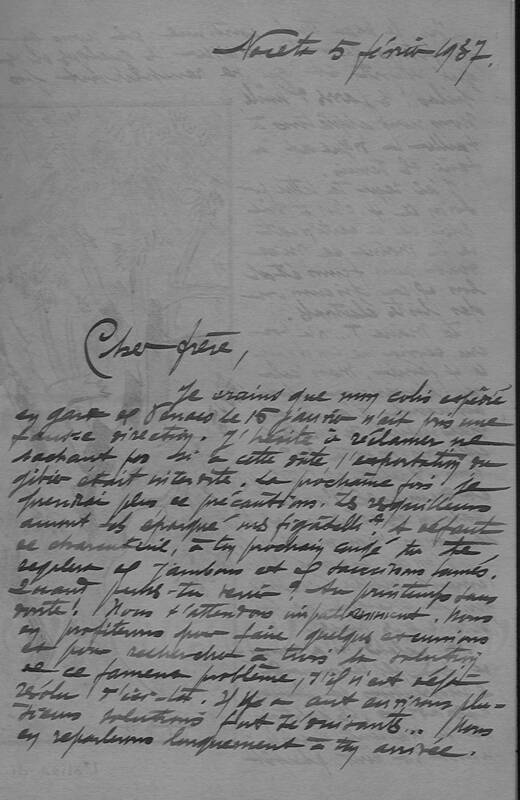 Noceta 5 février 1937.
Cher frère,
Je crains que mon colis expédié
en gare de le 15 janvier n'ait pris une
fausse direction. J'hésite à réclamer ne
sachant pas si à cette date l'exportation du
gibier était interdite. La prochaine fois je
prendrai plus de précautions. Les
auront épargné mes figatelli. A défaut
de charcuterie, à ton prochain congé tu te
régaleras de jambons et de saucissons fumés.
Quand penses-tu venir? Au printemps sans
doute! Nous t'attendons impatiemment. Nous
en profiterons pour faire quelques excursions
et pour rechercher à trois la solution
de ce fameux problème, s'il n'est déjà
résolu d'ici-là. Il y a aux environs plu-
sieurs solutions séduisantes... Nous
en reparlerons longuement à ton arrivée.